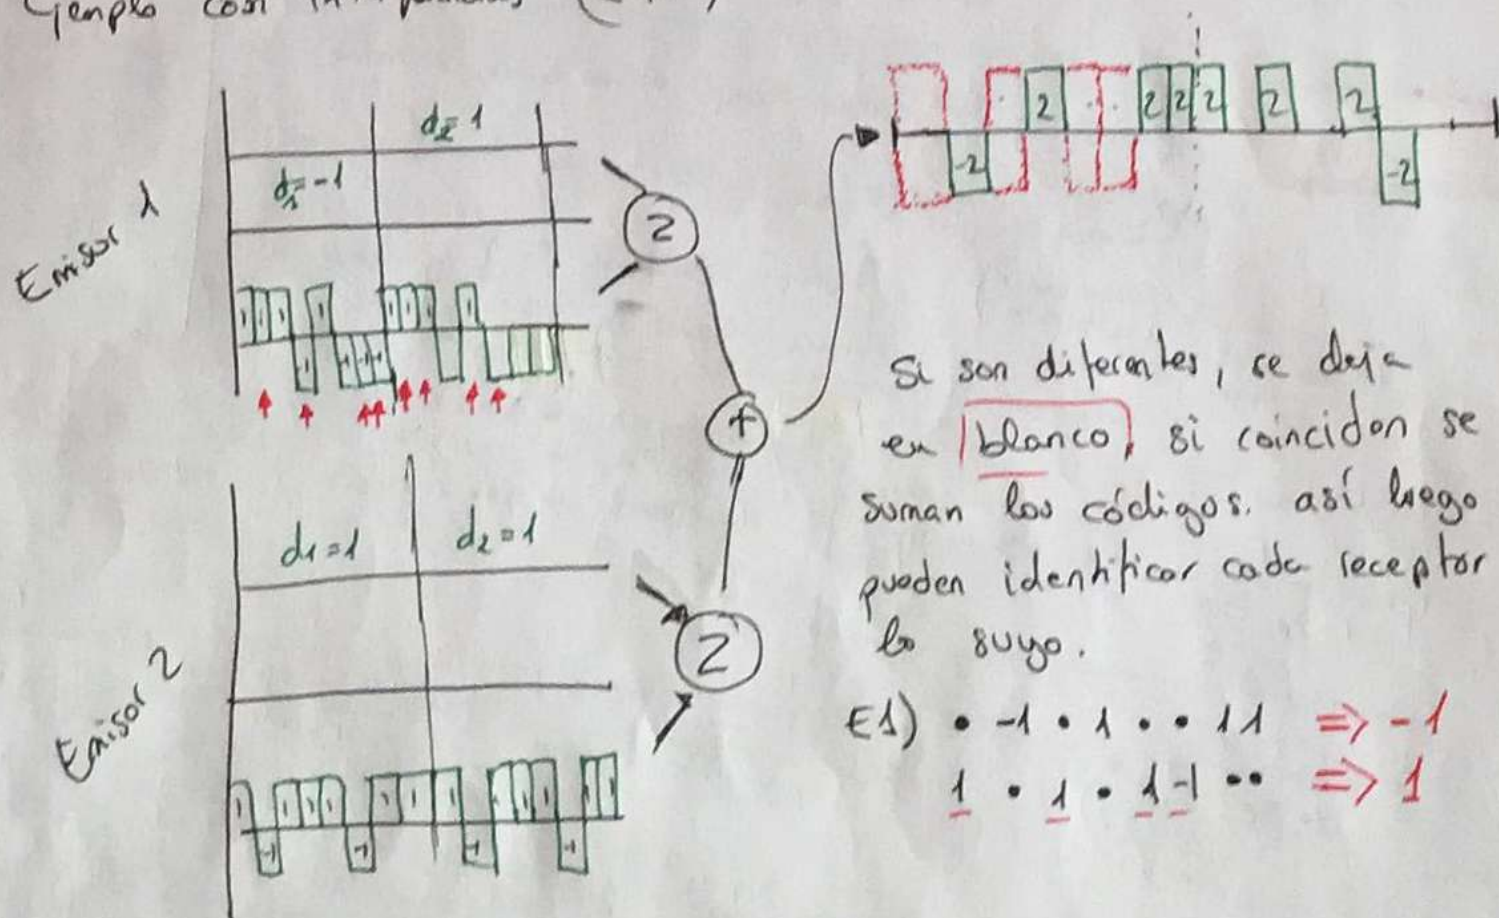 Ejemplo con
Emisor 1
d1=-1
d2=1
2
+
2 2 2 2 2 2
-2 -2
Si son diferentes, se deja
en blanco, si coinciden se
suman los códigos. así luego
pueden identificar cada receptor
lo suyo.
E1) • -1 • 1 • • 1 1 => -1
1 • 1 • 1 -1 • • => 1
Emisor 2
d1=1
d2=1
2
-1 -1 -1 -1